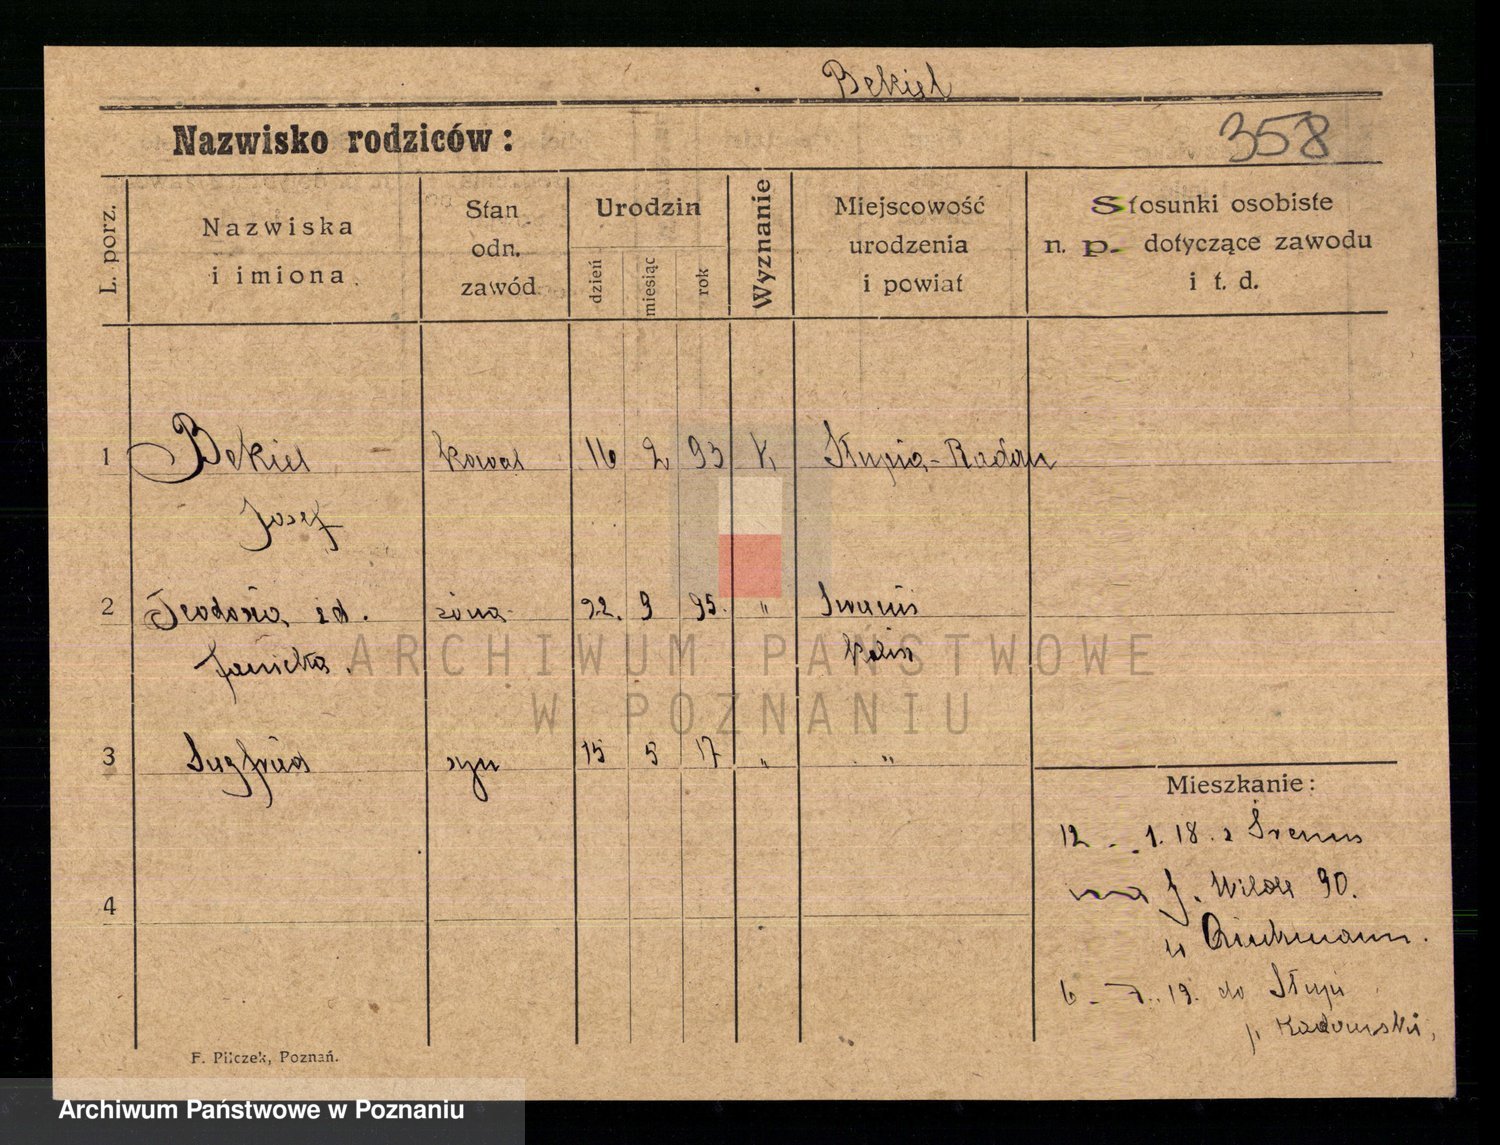 Bekiel
Nazwisko rodziców:
358
L. porz.
Nazwiska
i imiona
Stan
odn.
zawód
Urodzin
dzień
miesiąc
rok
Wyznanie
Miejscowość
urodzenia
i powiat
Stosunki osobiste
n. p. dotyczące zawodu
i t. d.
1 Bekiel kowal 16 2 93 k, Słupia-Radom
Josef
2 Teodozia żona 22. 9 95. "
Janicka. Kolin
3 syn 15 5 17 " "
4
Mieszkanie:
12 - 1. 18. z Śremu
na f. Wilda 90.
u
6 - 7. 19. do Słupi
p. Radomski,
F. Pilczek, Poznań.
ARCHIWUM PAŃSTWOWE
W POZNANIU
Archiwum Państwowe w Poznaniu